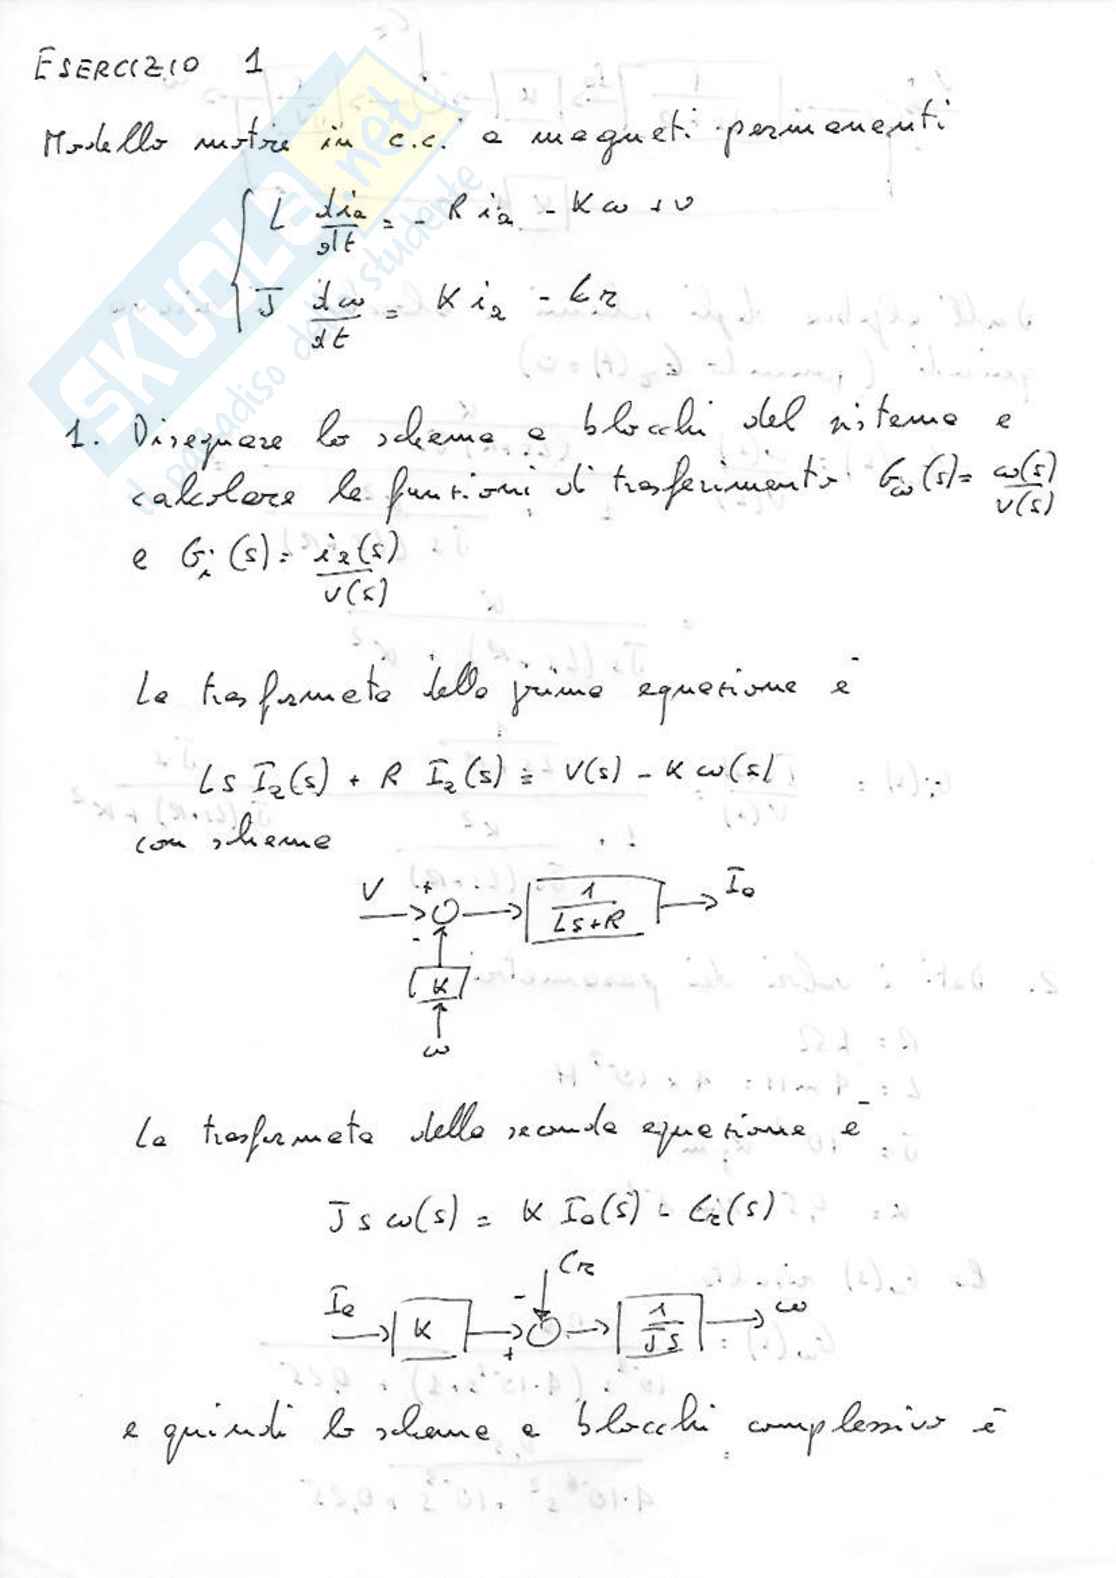 ESERCIZIO 1
Modello motore in c.c. a magneti permanenti
L dia/dt = - R ia - K ω + v
J dω/dt = K ia - Cr
1. Disegnare lo schema a blocchi del sistema e
calcolare le funzioni di trasferimento Gω(s) = ω(s)/v(s)
e Gi(s) = ia(s)/v(s)
La trasformata della prima equazione è
Ls Ia(s) + R Ia(s) = V(s) - K ω(s)
con schema
V + 1/(Ls+R) Ia
-
K
ω
La trasformata della seconda equazione è
J s ω(s) = K Ia(s) - Cr(s)
Cr
Ia K + - 1/(Js) ω
e quindi lo schema a blocchi complessivo è
SKUOLA.net
il paradiso dello studente